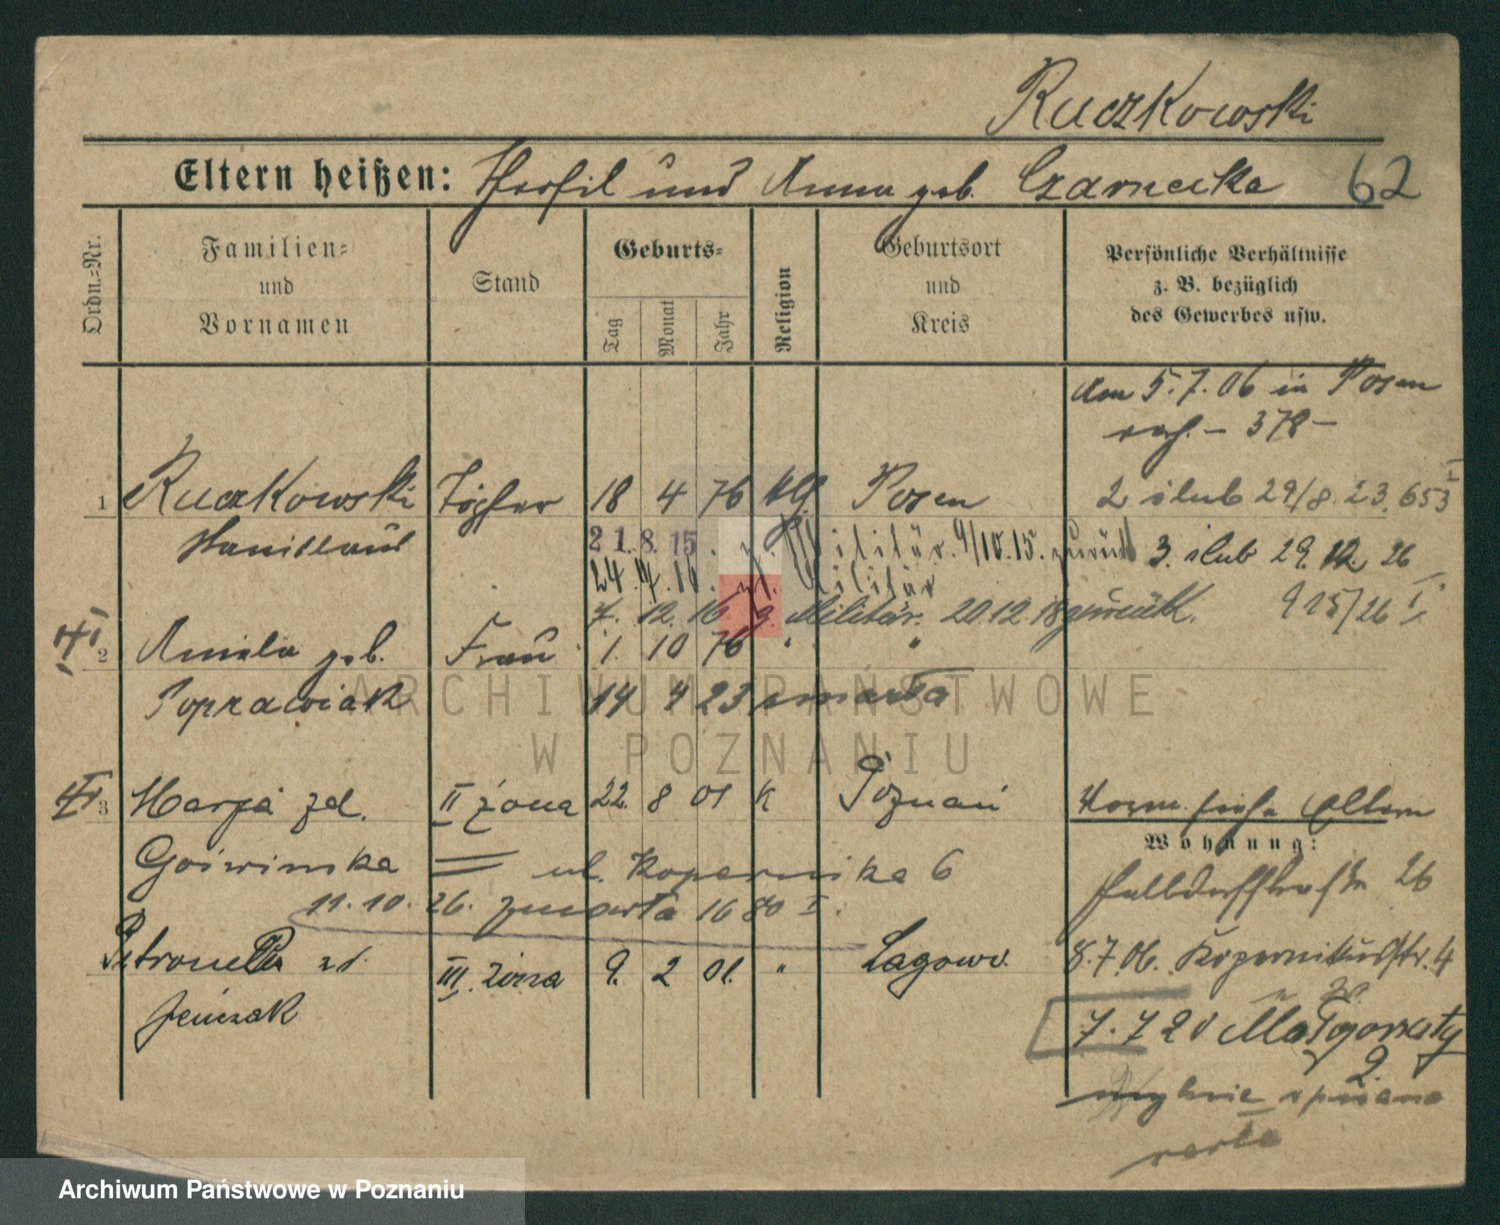 Ruczkowski
Eltern heißen: und Anna geb. Czarnecka 62
Ordn.-Nr.
Familien- und Vornamen
Stand
Geburts-
Tag
Monat
Jahr
Religion
Geburtsort und Kreis
Persönliche Verhältnisse
z. B. bezüglich
des Gewerbes usw.
Am 5.7.06 in Posen
378
1 Ruczkowski Töpfer 18 4 76 klh. Posen 2 ślub 29/8.23.653 I
Stanislaus 21.8.15. z. Militär. 9/10.15. zurück 3. ślub 29.12.26
24.4.16. z. Militär
7. 12. 16. z. Militär. 20.12.18 zurück. 915/26 I
2 Aniela geb. Frau 1. 10 76 " "
Poprawiak 14 4 23 zmarła
3 Marja zd. II żona 22. 8 01 k Poznań Eltern
Wohnung:
ul. Kopernika 6
26
11.10.26. zmarła 1680 I.
Petronella zd. III. żona 9. 2 01. " 8.7.06. Kopernikusstr. 4
7.7 20 Małgorzaty
2.
mylnie spisana